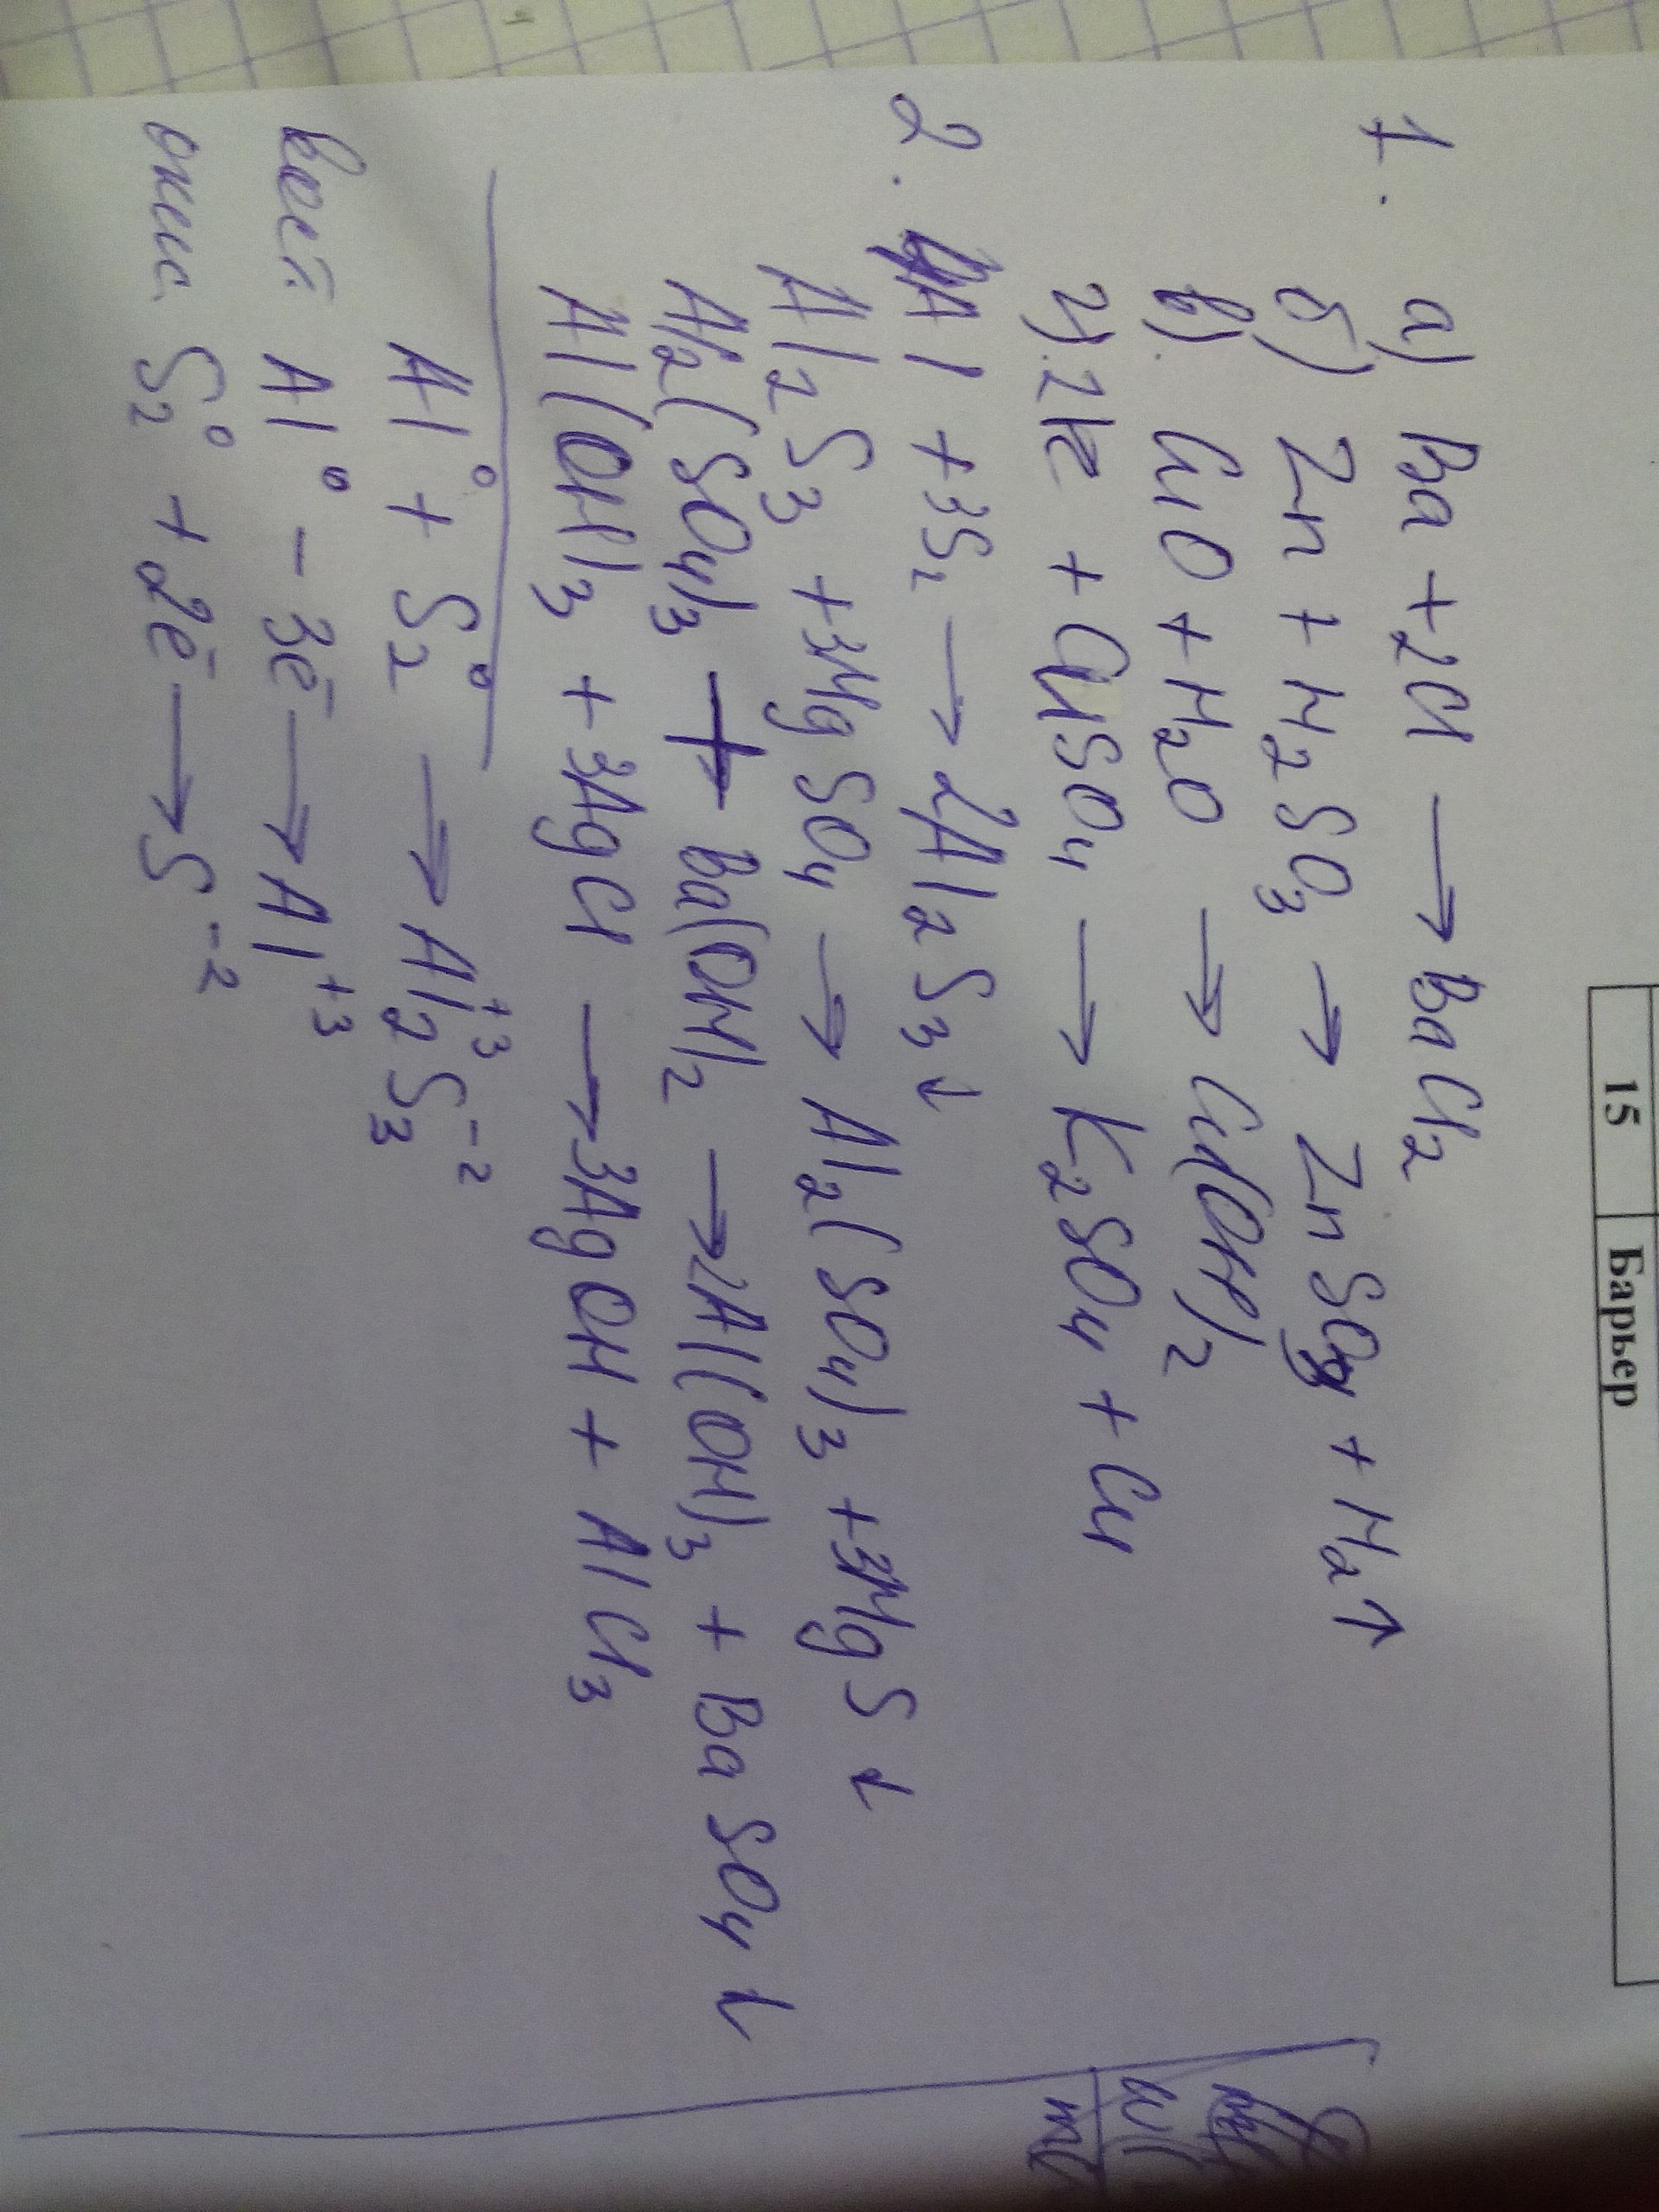 15 Барьер
1. а) Ba + 2Cl → BaCl₂
б) Zn + H₂SO₃ → ZnSO₃ + H₂↑
в) CuO + H₂O → Cu(OH)₂
г) 2K + CuSO₄ → K₂SO₄ + Cu
2. Al + 3S₂ → 2Al₂S₃↓
Al₂S₃ + 3MgSO₄ → Al₂(SO₄)₃ + 3MgS↓
Al₂(SO₄)₃ + Ba(OH)₂ → 2Al(OH)₃ + BaSO₄↓
Al(OH)₃ + 3AgCl → 3AgOH + AlCl₃
Al⁰ + S₂⁰ → Al₂⁺³S₃⁻²
Al⁰ - 3e̅ → Al⁺³
окис S₂⁰ + 2e̅ → S⁻²